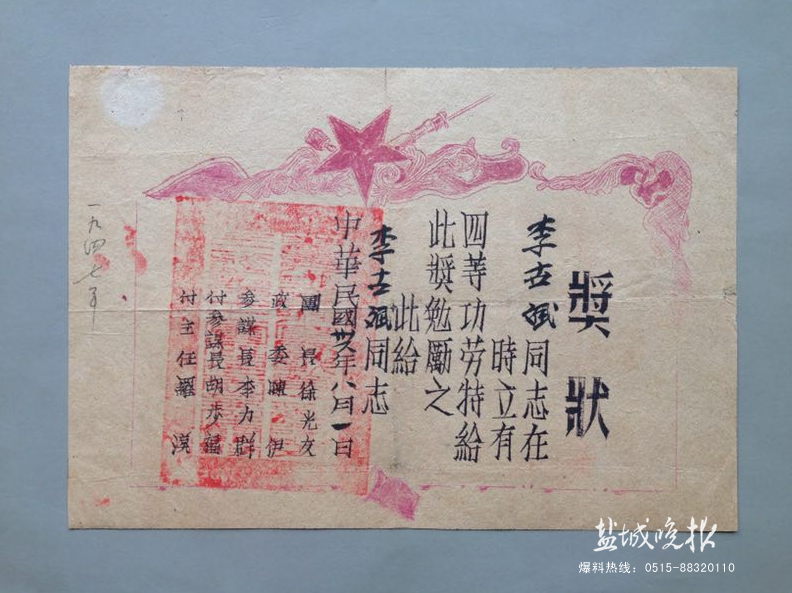 獎狀
李古斌同志在
時立有
四等功勞特給
此獎勉勵之
此給
李古斌同志
中華民國卅六年八月一日
團長徐光友
政委陳伊
參謀長李力群
付參謀長胡步
付主任羅漠
一九四七年
盐城晚报
爆料热线：0515-88320110